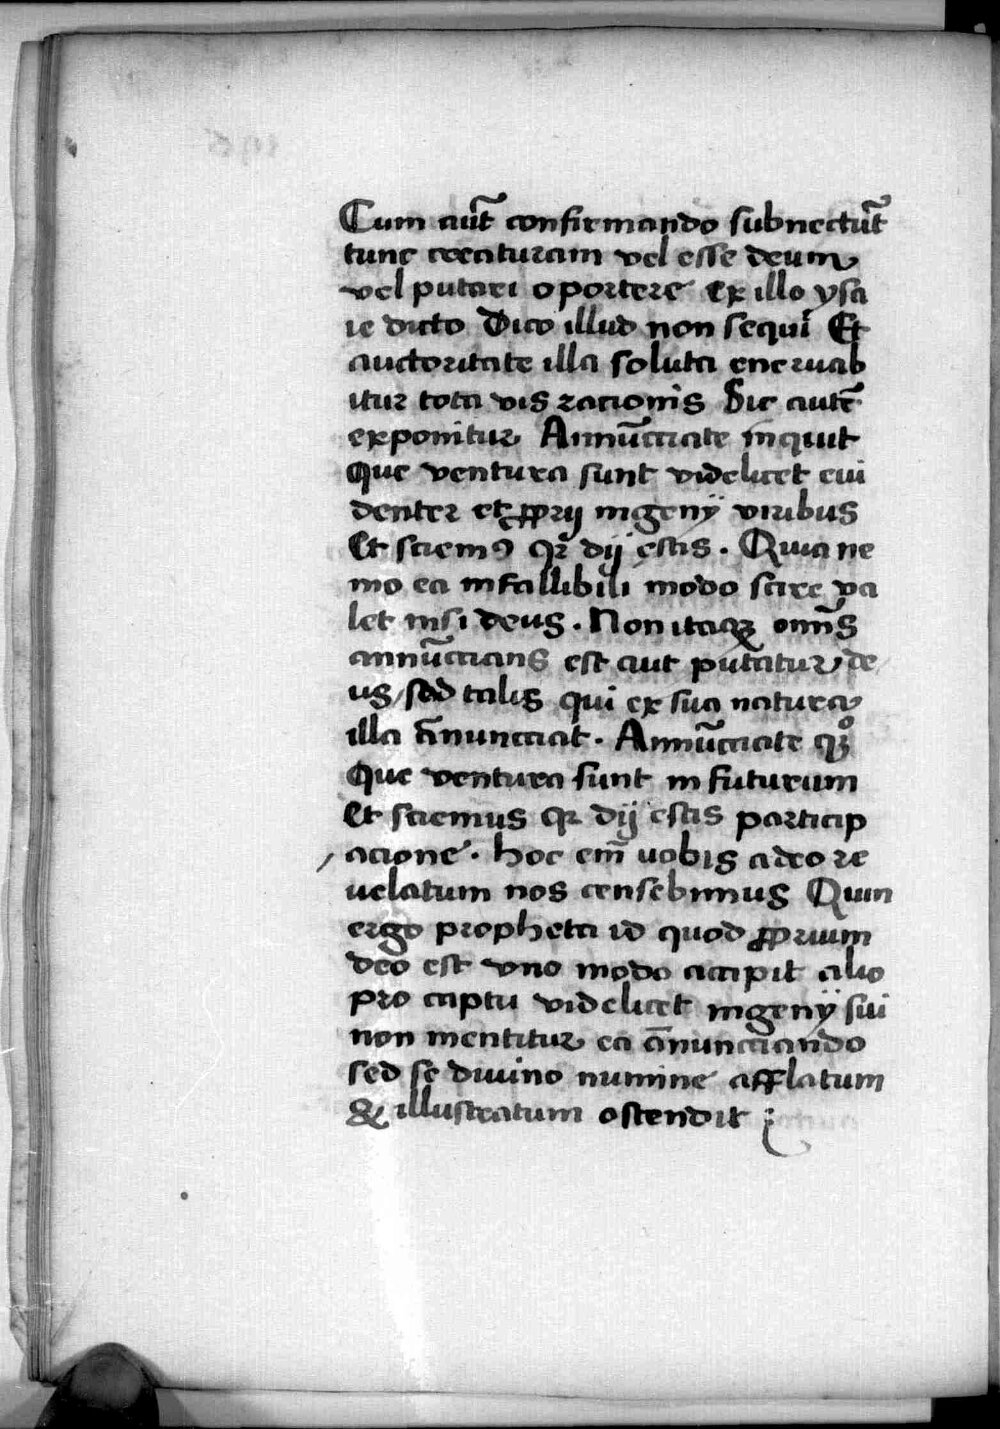 Cum aūt confirmando subnectūt
tunc creaturam vel esse deum
vel putari oportere ex illo ysa
ie dicto Dico illud non sequi Et
auctoritate illa soluta eneruab
itur tota vis racionis Sic autē
exponitur Annūciate inquit
Que ventura sunt videlicet eui
denter et ꝓprij ingenÿ viribus
Et sciemꝰ qꝛ dij estis. Quia ne
mo ea infallibili modo scire va
let nisi deus. Non itaqꝫ omīs
annūcians est aut putatur de
us/sed talis qui ex sua natura
illa ānunciat. Annūciate qͦꝫ
Que ventura sunt in futurum
Et sciemus qꝛ dij estis particip
acione. hoc em̄ vobis a deo re
uelatum nos censebimus Quin
ergo propheta id quod ꝓprium
deo est vno modo accipit alio
pro captu videlicet ingenÿ sui
non mentitur ea ānunciando
sed se diuino numine afflatum
& illustratum ostendit